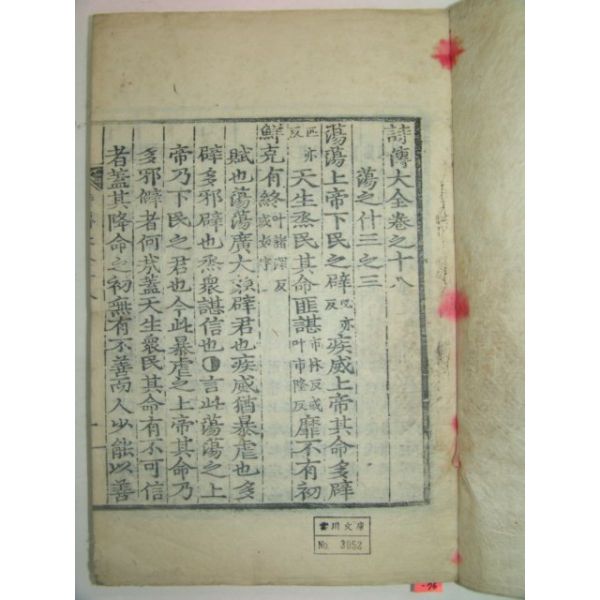 詩傳大全卷之十八
蕩之什三之三
蕩蕩上帝下民之辟必亦反疾威上帝其命多辟
匹亦反天生烝民其命匪諶市林反或叶市隆反靡不有初
鮮克有終叶諸深反或如字
賦也蕩蕩廣大貌辟君也疾威猶暴虐也多
辟多邪辟也烝衆諶信也○言此蕩蕩之上
帝乃下民之君也今此暴虐之上帝其命乃
多邪僻者何哉蓋天生衆民其命有不可信
者蓋其降命之初無有不善而人少能以善
文庫
No. 3052
-76